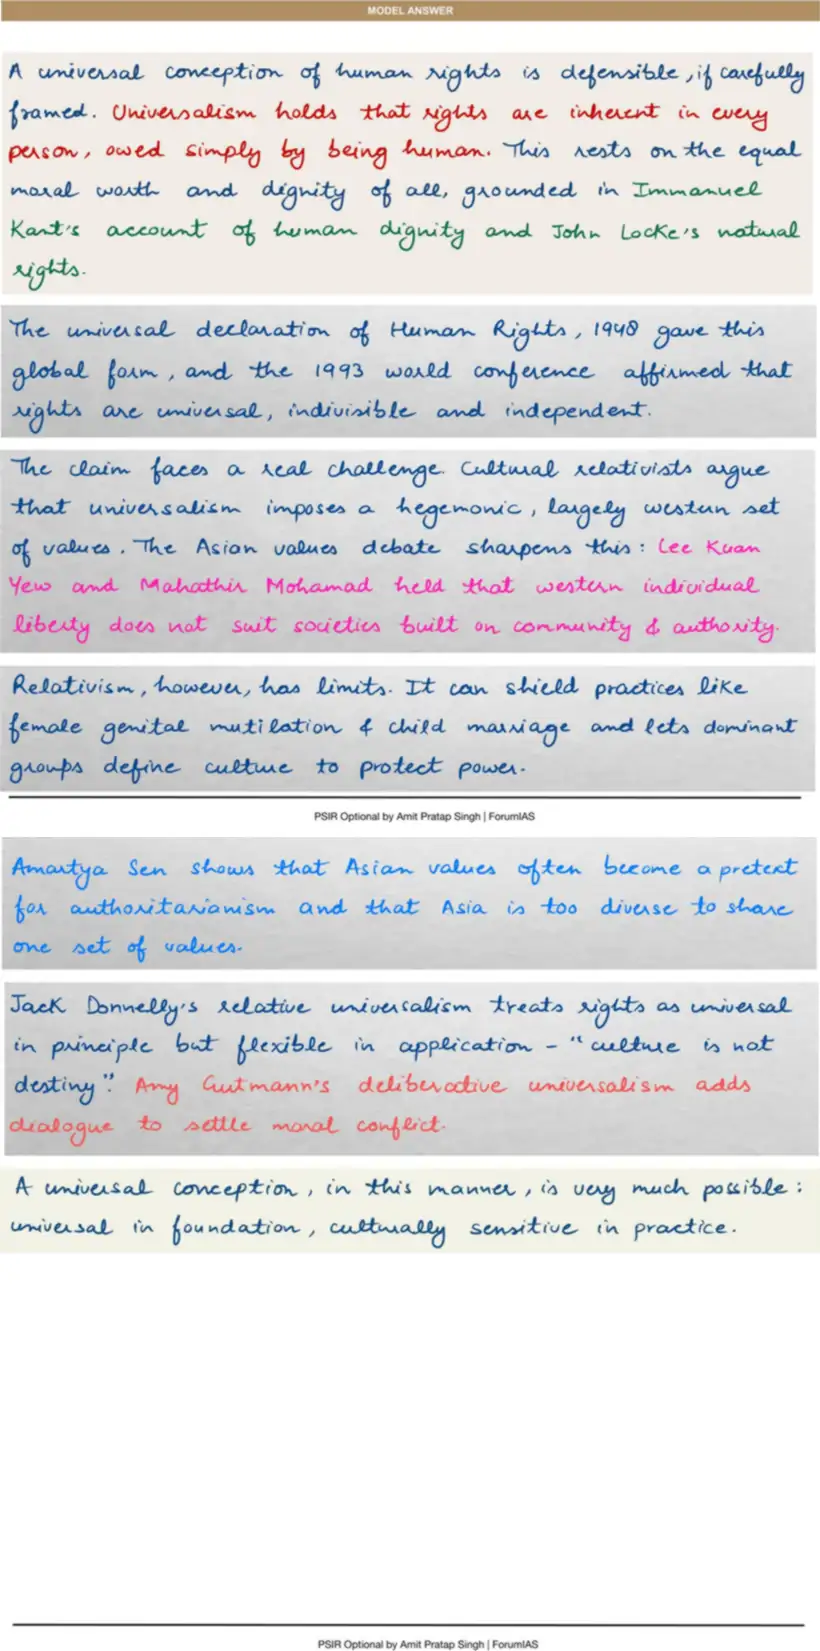 MODEL ANSWER
A universal conception of human rights is defensible, if carefully
framed. Universalism holds that rights are inherent in every
person, owed simply by being human. This rests on the equal
moral worth and dignity of all, grounded in Immanuel
Kant's account of human dignity and John Locke's natural
rights.
The universal declaration of Human Rights, 1948 gave this
global form, and the 1993 world conference affirmed that
rights are universal, indivisible and independent.
The claim faces a real challenge. Cultural relativists argue
that universalism imposes a hegemonic, largely western set
of values. The Asian values debate sharpens this: Lee Kuan
Yew and Mahathir Mohamad held that western individual
liberty does not suit societies built on community & authority.
Relativism, however, has limits. It can shield practices like
female genital mutilation & child marriage and lets dominant
groups define culture to protect power.
PSIR Optional by Amit Pratap Singh | ForumIAS
Amartya Sen shows that Asian values often become a pretext
for authoritarianism and that Asia is too diverse to share
one set of values.
Jack Donnelly's relative universalism treats rights as universal
in principle but flexible in application - "culture is not
destiny". Amy Gutmann's deliberative universalism adds
dialogue to settle moral conflict.
A universal conception, in this manner, is very much possible:
universal in foundation, culturally sensitive in practice.
PSIR Optional by Amit Pratap Singh | ForumIAS